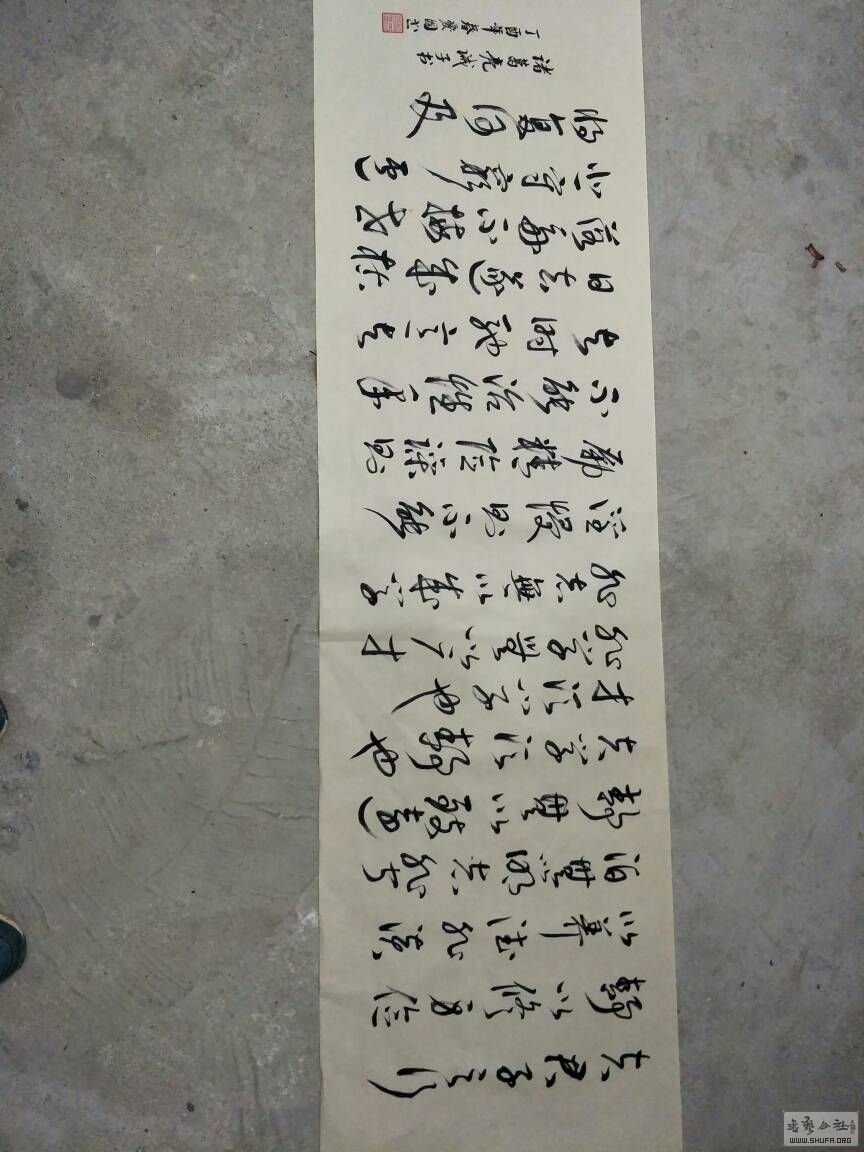 夫君子之行
静以修身俭
以养德非澹
泊無以明志非宁
静無以致遠
夫学须静也
才须学也
非学無以广才
非志無以成学
淫慢則不能
励精险躁則
不能治性年
与时馳意与
日去遂成枯
落多不接世
悲守窮廬
将復何及
诸葛亮诫子书
丁酉年春爱国书
WWW.SHUFA.ORG